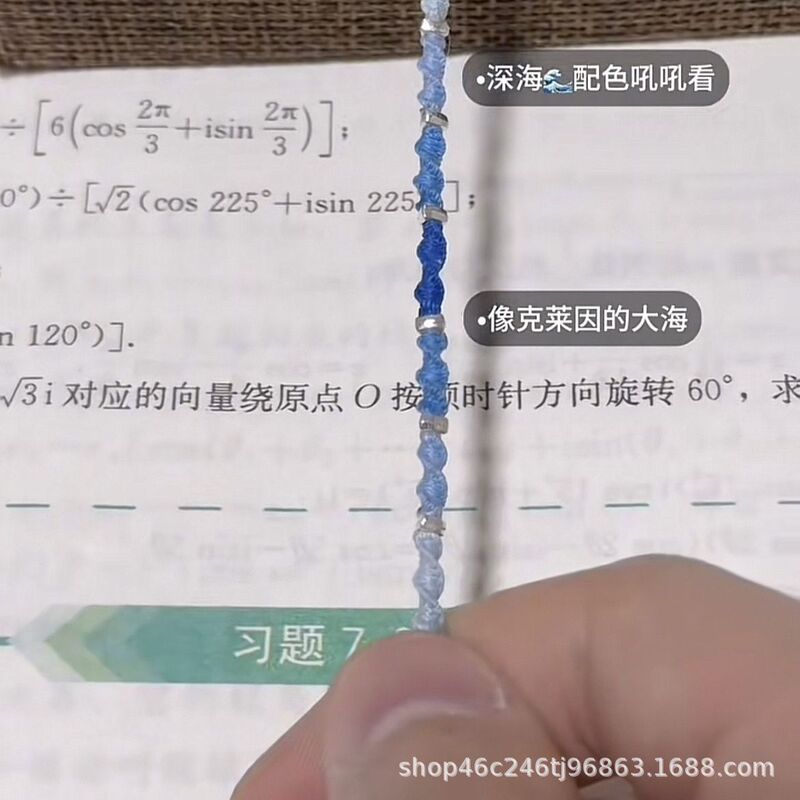 •深海🌊配色吼吼看
÷[6(cos 2π/3+isin 2π/3)];
0°)÷[√2(cos 225°+isin 225
];
•像克莱因的大海
n 120°)].
√3i 对应的向量绕原点 O 按顺时针方向旋转 60°，求
习题 7.
shop46c246tj96863.1688.com